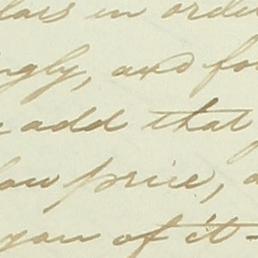 lars in order
ngly, and fo
add that
low price,
gan of it-